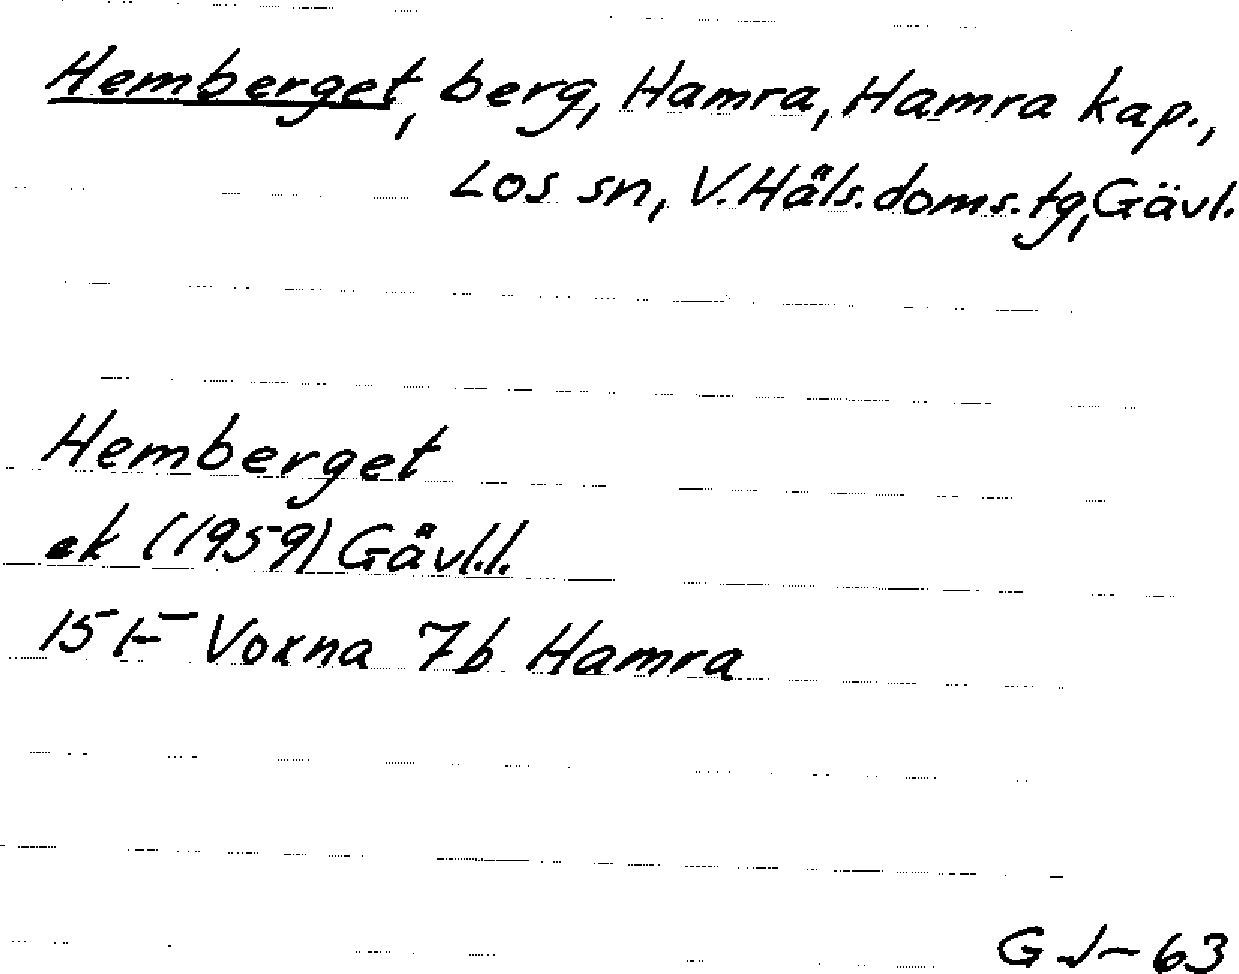 Hemberget, berg, Hamra, Hamra kap.,
Los sn, V. Häls. doms. tg, Gävl.
Hemberget
ek (1959) Gävl.l.
15 F Voxna 7b Hamra
GJ-63